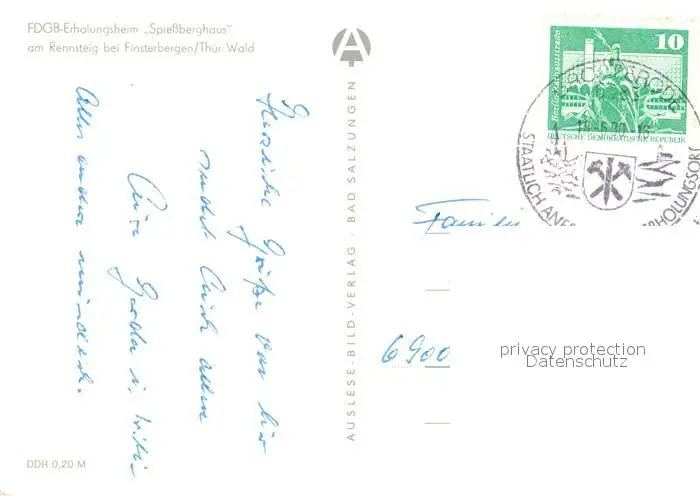 FDGB-Erholungsheim „Spießberghaus"
am Rennsteig bei Finsterbergen/Thür. Wald
Herzliche Grüße von hier
sendet Euch allen
Eure Gerda u. Willi
Alles andere mündlich.
AUSLESE-BILD-VERLAG · BAD SALZUNGEN
DDR 0,20 M
10
Berlin, Rathausstraße
DEUTSCHE DEMOKRATISCHE REPUBLIK
BROTTERODE
STAATLICH ANER
ERHOLUNGSOR
Familie
6900
privacy protection
Datenschutz